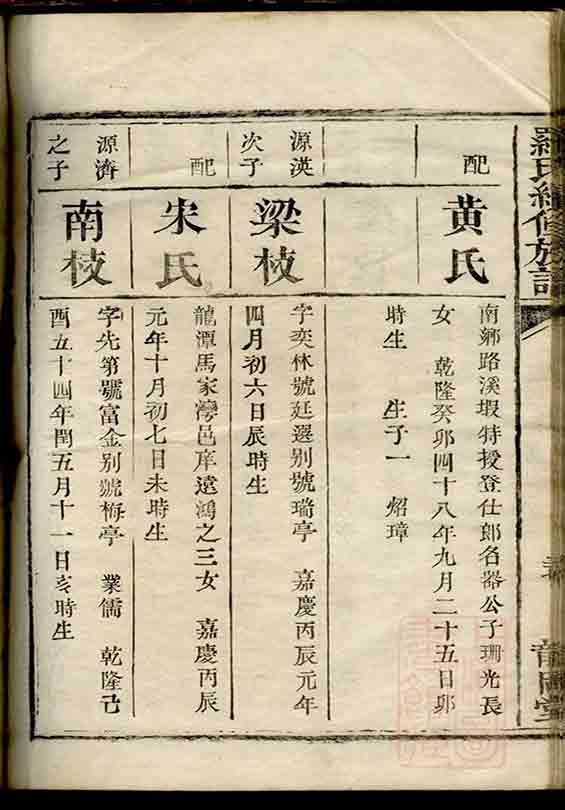 羅氏續修族譜
龍岡堂
配
黃氏
南鄉路溪塅特授登仕郎名器公子珊光長
女 乾隆癸卯四十八年九月二十五日卯
時生 生子一 炤璋
源渶
次子
梁枝
字奕林號廷選别號瑞亭 嘉慶丙辰元年
四月初六日辰時生
配
宋氏
龍潭馬家灣邑庠遠鴻之三女 嘉慶丙辰
元年十月初七日未時生
源濟
之子
南枝
字先第號富金别號梅亭 業儒 乾隆己
酉五十四年閏五月十一日亥時生